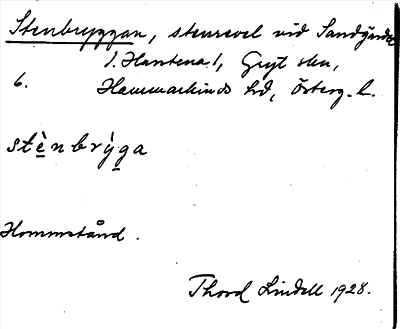 Stenbryggan, stenrevel vid Sandgärdet
1. Hantena 1, Gryt skn,
6. Hammarkinds hd, Österg. l.
stè̱nbrỳ̱ga
Hommstånd.
Thord Lindell 1928.